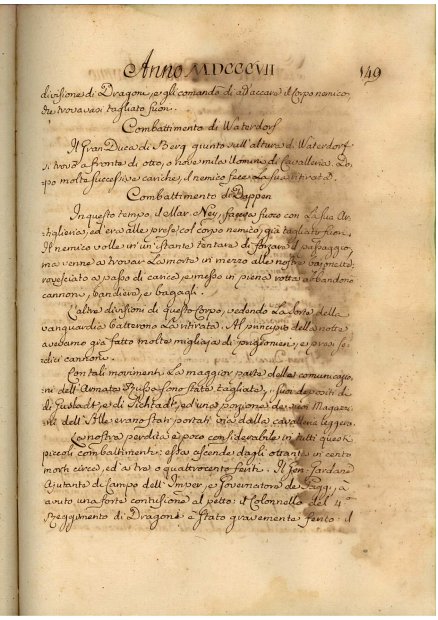 Anno MDCCCVII
149
divisione di Dragoni, e gli comandò di attaccare il Corpo nemico,
che trovavasi tagliato fuori.
Combattimento di Waterdorf
Il Gran Duca di Berg giunto sull'altura di Waterdorf
si trovò a fronte di otto, o nove mila Uomini di Cavalleria. Do-
po molte successive cariche, il nemico fece la sua ritirata.
Combattimento di Dappen
In questo tempo, il Mar. Ney, faceva fuoco con la sua Ar-
tiglieria, ed era alle prese col corpo nemico, già tagliato fuori.
Il nemico volle in un'istante tentare di forzare il passaggio,
ma venne a trovar la morte in mezzo alle nostre bajonette:
rovesciato a passo di carica, e messo in piena rotta abbandonò
cannoni, bandiere, e bagagli.
L'altre divisioni di questo Corpo, vedendo la sorte della
vanguardia batterono la ritirata. Al principio della notte
avevamo già fatto molte migliaja di prigionieri, e presi se-
dici cannoni.
Con tali movimenti la maggior parte delle comunicazio-
ni dell'Armata Russa sono state tagliate, i suoi depositi di
di Gustadt, e di ed una porzione de' suoi Magazzi-
ni dell'Alle erano stati portati via dalla cavalleria leggera.
La nostra perdita è poco considerabile in tutti questi
piccoli combattimenti: essa ascende dagli ottanta in cento
morti circa, ed a tre o quattrocento feriti. Il Gen. Gardane
Ajutante di Campo dell'Imper., e Governatore de' Paggi, à
avuto una forte contusione al petto: il Colonnello del 4°
Reggimento di Dragoni è stato gravemente ferito: il